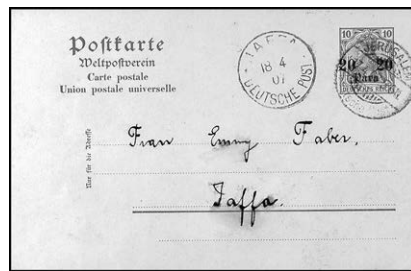 Postkarte
Weltpostverein
Carte postale
Union postale universelle
JAFFA
18 4
07
DEUTSCHE POST
10 10
20 20
Para
JERUSALEM
Nur für die Adresse
Frau Emmy Faber.
Jaffa.